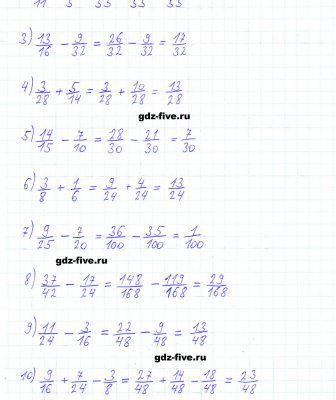 11 3 33 33 33
3) 13/16 - 9/32 = 26/32 - 9/32 = 17/32
4) 3/28 + 5/14 = 3/28 + 10/28 = 13/28
gdz-five.ru
5) 14/15 - 7/10 = 28/30 - 21/30 = 7/30
6) 3/8 + 1/6 = 9/24 + 4/24 = 13/24
7) 9/25 - 7/20 = 36/100 - 35/100 = 1/100
gdz-five.ru
8) 37/42 - 17/24 = 148/168 - 119/168 = 29/168
9) 11/24 - 3/16 = 22/48 - 9/48 = 13/48
gdz-five.ru
10) 9/16 + 7/24 - 3/8 = 27/48 + 14/48 - 18/48 = 23/48